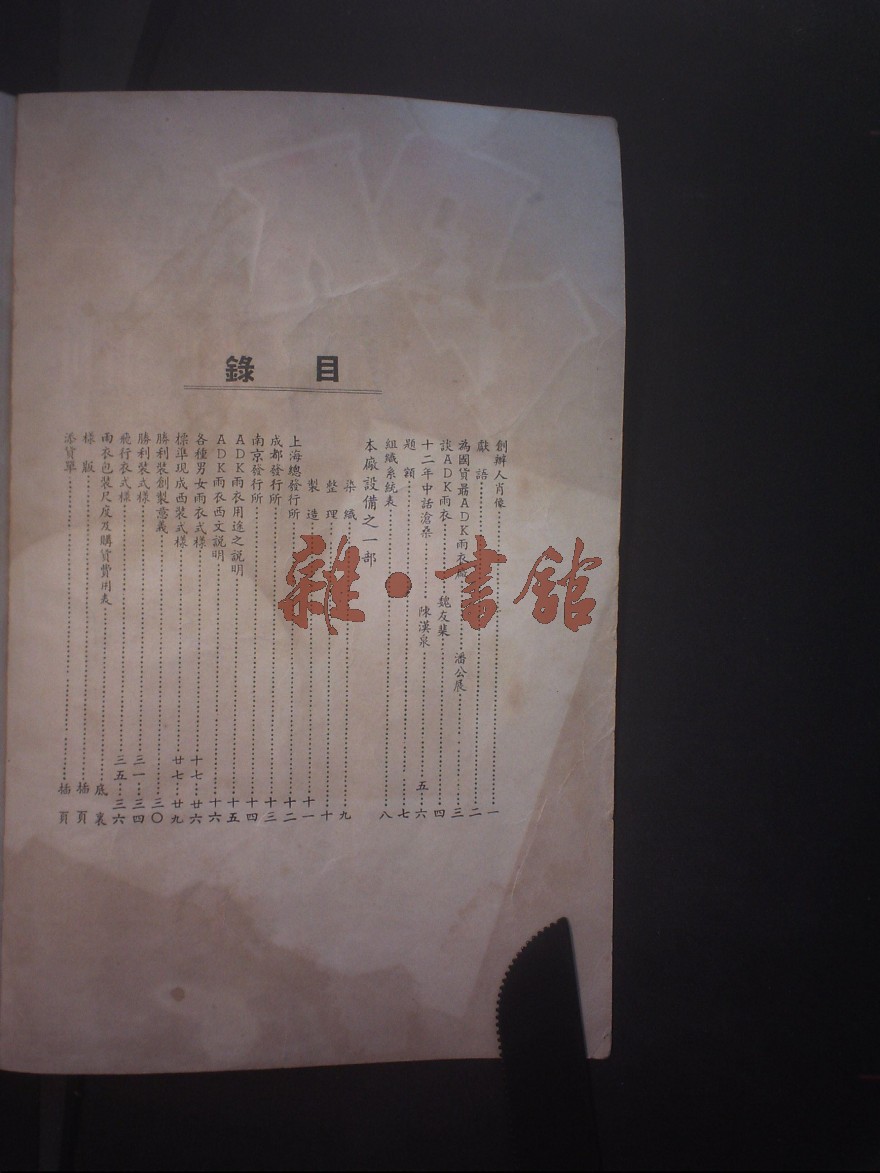 目錄
創辦人肖像 一
獻語 二
為國貨爵ADK雨衣 潘公展 三
談ADK雨衣 魏友棐 四
十二年中話滄桑 陳漢泉 五 六
題額 七
組織系統表 八
本廠設備之一部
染織 九
整理 十
製造 十一
上海總發行所 十二
成都發行所 十三
南京發行所 十四
ADK雨衣用途之説明 十五
ADK雨衣西文説明 十六
各種男女雨衣式樣 十七 廿六
標準現成西裝式樣 廿七 廿九
勝利裝創製意義 三〇
勝利裝式樣 三一 三四
飛行衣式樣 三五 三六
雨衣包裝尺度及購貨費用表 底裏
樣版 插頁
添貨單 插頁
雜·書館